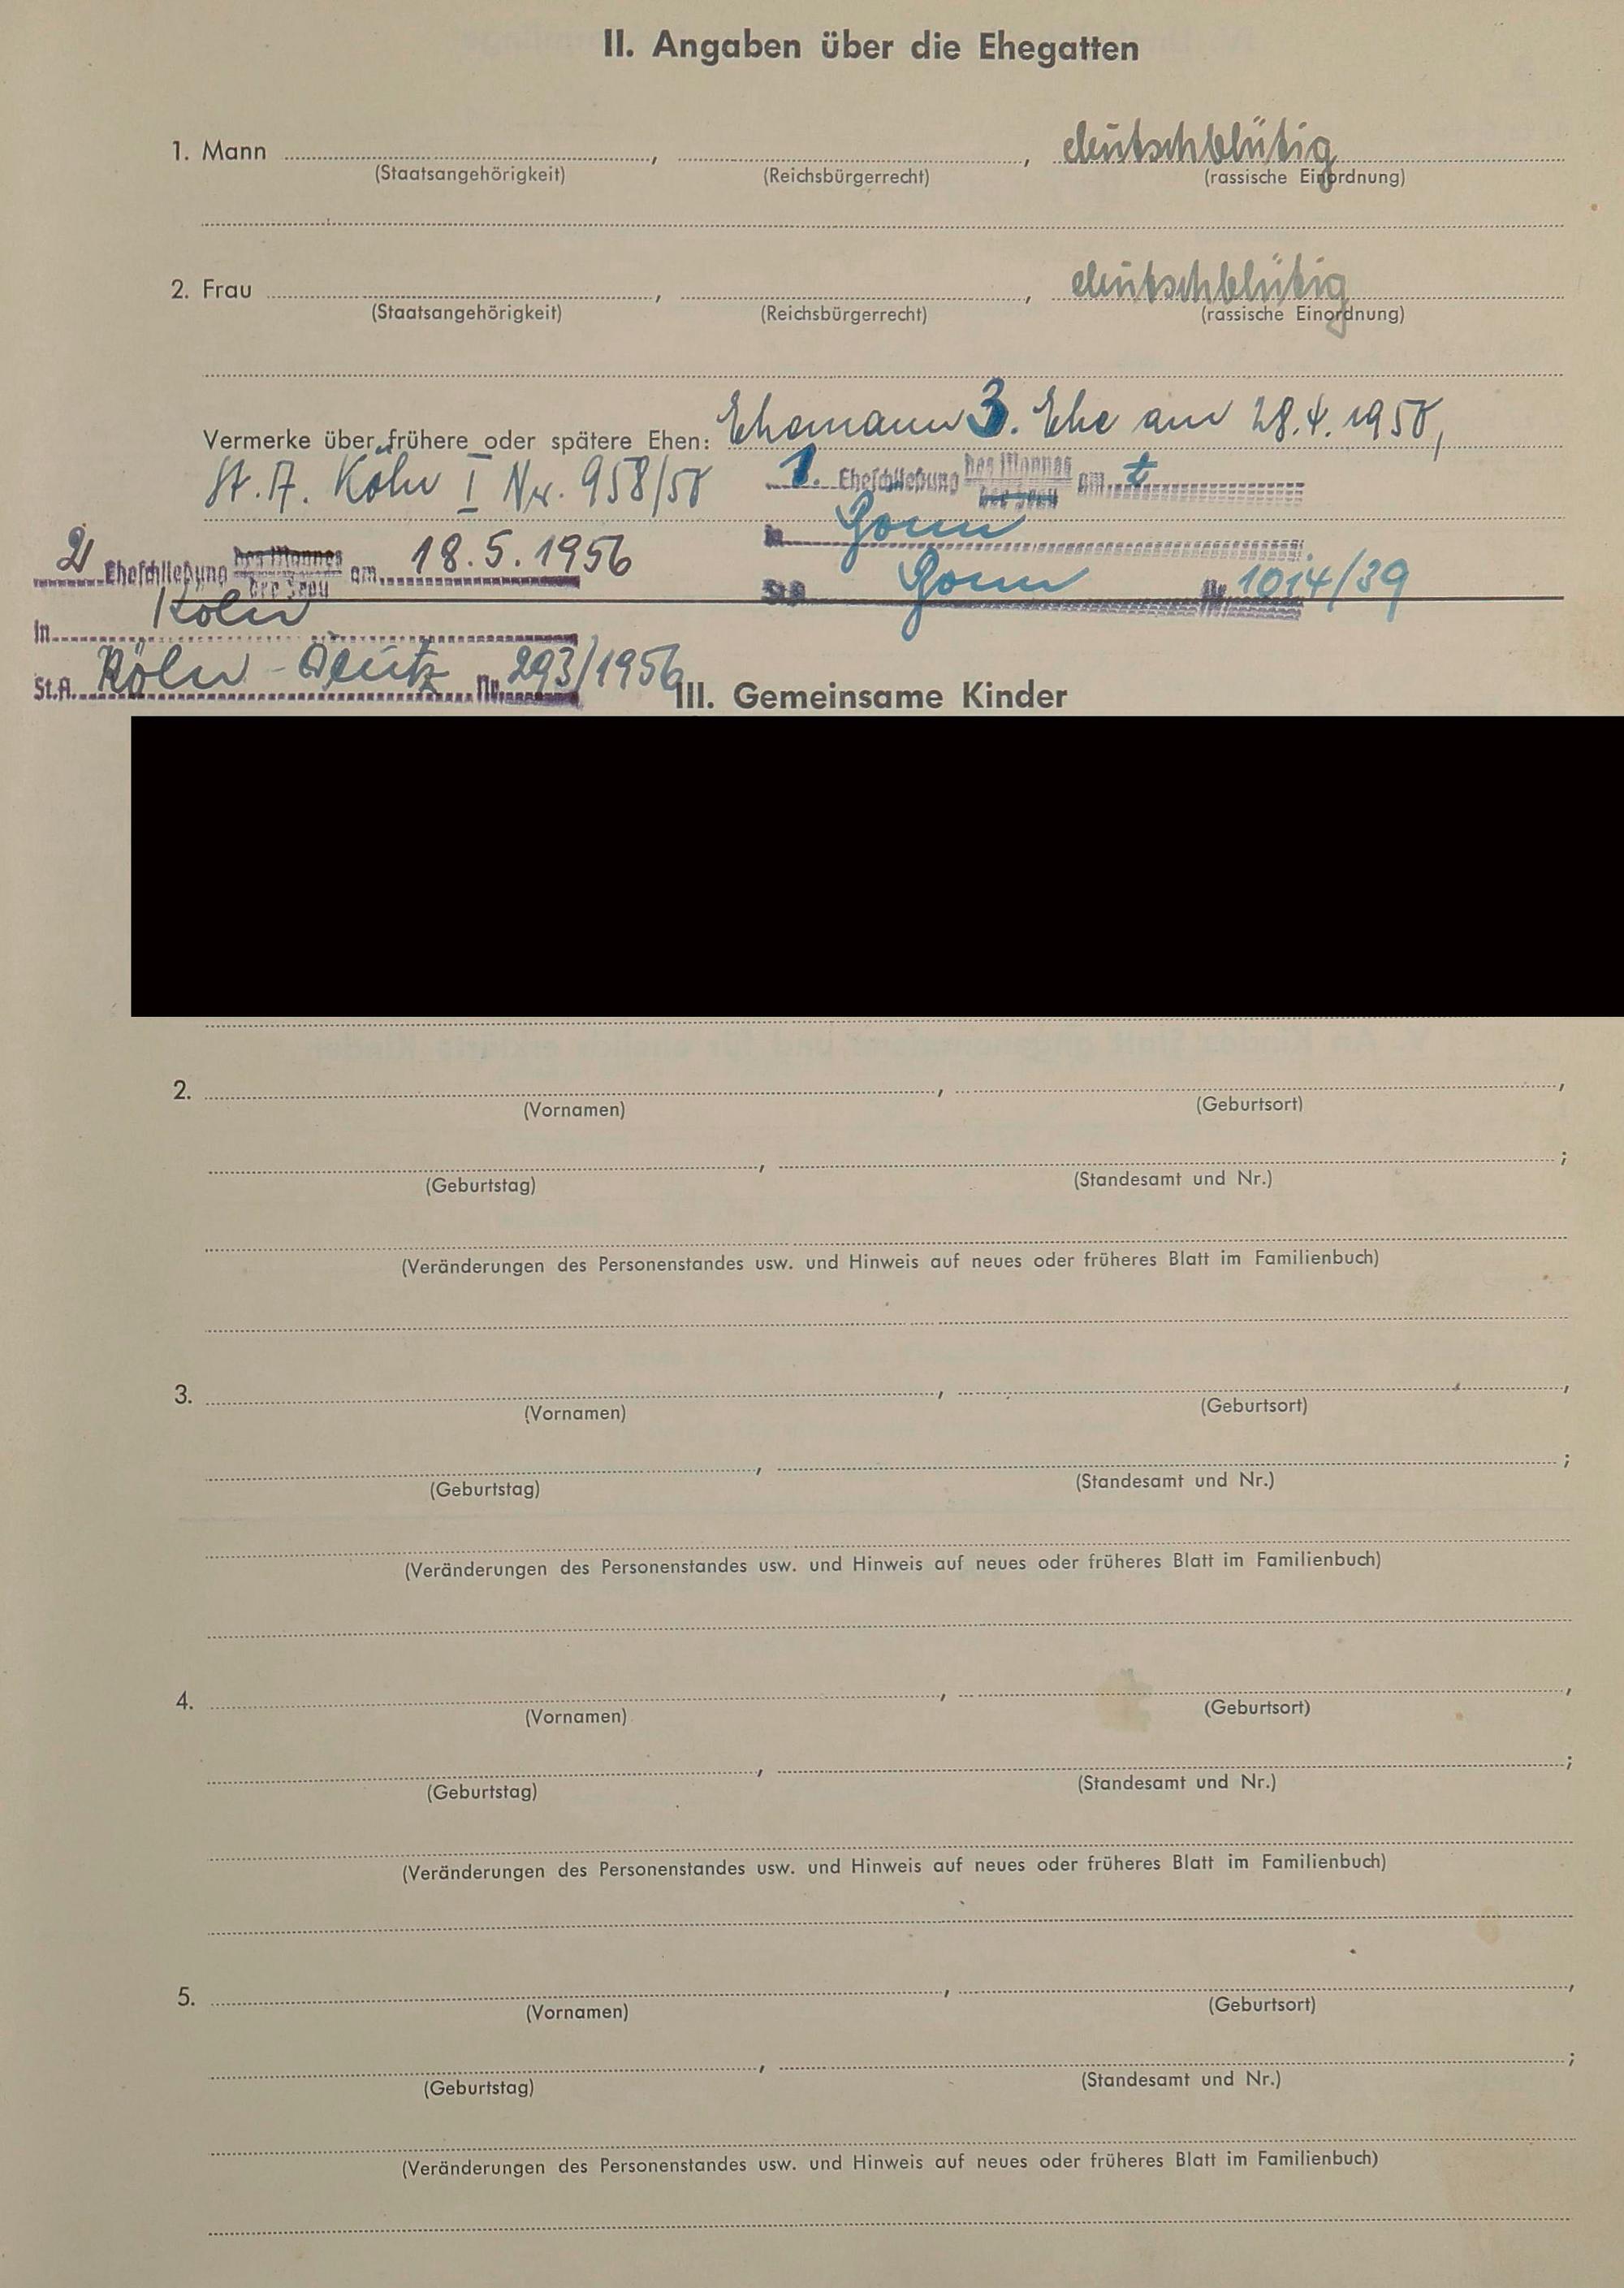 II. Angaben über die Ehegatten
1. Mann , , deutschblütig
(Staatsangehörigkeit) (Reichsbürgerrecht) (rassische Einordnung)
2. Frau , , deutschblütig
(Staatsangehörigkeit) (Reichsbürgerrecht) (rassische Einordnung)
Vermerke über frühere oder spätere Ehen: Ehemann 3. Ehe am 28.4.1950,
St. A. Köln I Nr. 958/50
1. Eheschließung des Mannes der Frau am
in
St.A. Nr. 1014/39
2 Eheschließung des Mannes der Frau am 18.5.1956
in Köln
St.A. Köln-Deutz Nr. 293/1956
III. Gemeinsame Kinder
2. , ,
(Vornamen) (Geburtsort)
, ;
(Geburtstag) (Standesamt und Nr.)
(Veränderungen des Personenstandes usw. und Hinweis auf neues oder früheres Blatt im Familienbuch)
3. , ,
(Vornamen) (Geburtsort)
, ;
(Geburtstag) (Standesamt und Nr.)
(Veränderungen des Personenstandes usw. und Hinweis auf neues oder früheres Blatt im Familienbuch)
4. , ,
(Vornamen) (Geburtsort)
, ;
(Geburtstag) (Standesamt und Nr.)
(Veränderungen des Personenstandes usw. und Hinweis auf neues oder früheres Blatt im Familienbuch)
5. , ,
(Vornamen) (Geburtsort)
, ;
(Geburtstag) (Standesamt und Nr.)
(Veränderungen des Personenstandes usw. und Hinweis auf neues oder früheres Blatt im Familienbuch)